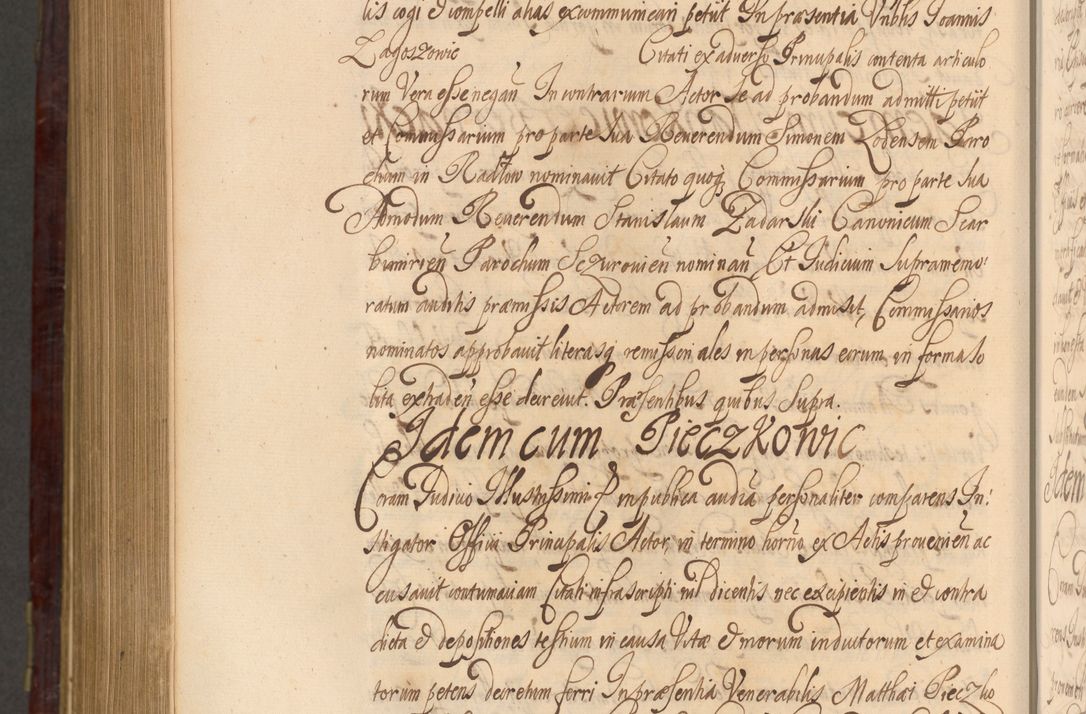 lis cogi et compelli alias excommunicari petiit In præsentia Vnblis Joannis
Zagoszowic Citati ex aduerso Principalis contenta articulo
rum Vera esse negan̄ In contrarium Actor se ad probandum admitti petiit
et Commissarium pro parte sua Reuerendum Simonem Zobensem Paro
chum in Radłow nominauit Citato quoq; Commissarium pro parte sua
Admodum Reuerendum Stanislaum Zadarski Canonicum Scar
bimirien̄ Parochum Sczurouien̄ nominan̄ Et Judicium supramemo:
ratum auditis præmissis Actorem ad probandum admisit, Commissarios
nominatos approbauit literasq; remissoriales in personas eorum in forma so
lita extraden̄ esse decreuit. Præsentibus quibus supra.
Idem cum Pieczkowic
Coram Judicio Illustrissimi E in publica audīa personaliter comparens In:
stigator Officii Principalis Actor, in termino horno ex Actis prouenien̄ ac
cusauit contumaciam Citati infrascripti nil dicentis nec excipientis in et contra
dicta et depositiones testium in causa Vitæ et morum inductorum et examina
torum petens decretum ferri In præsentia Venerabilis Matthæi Pieczko